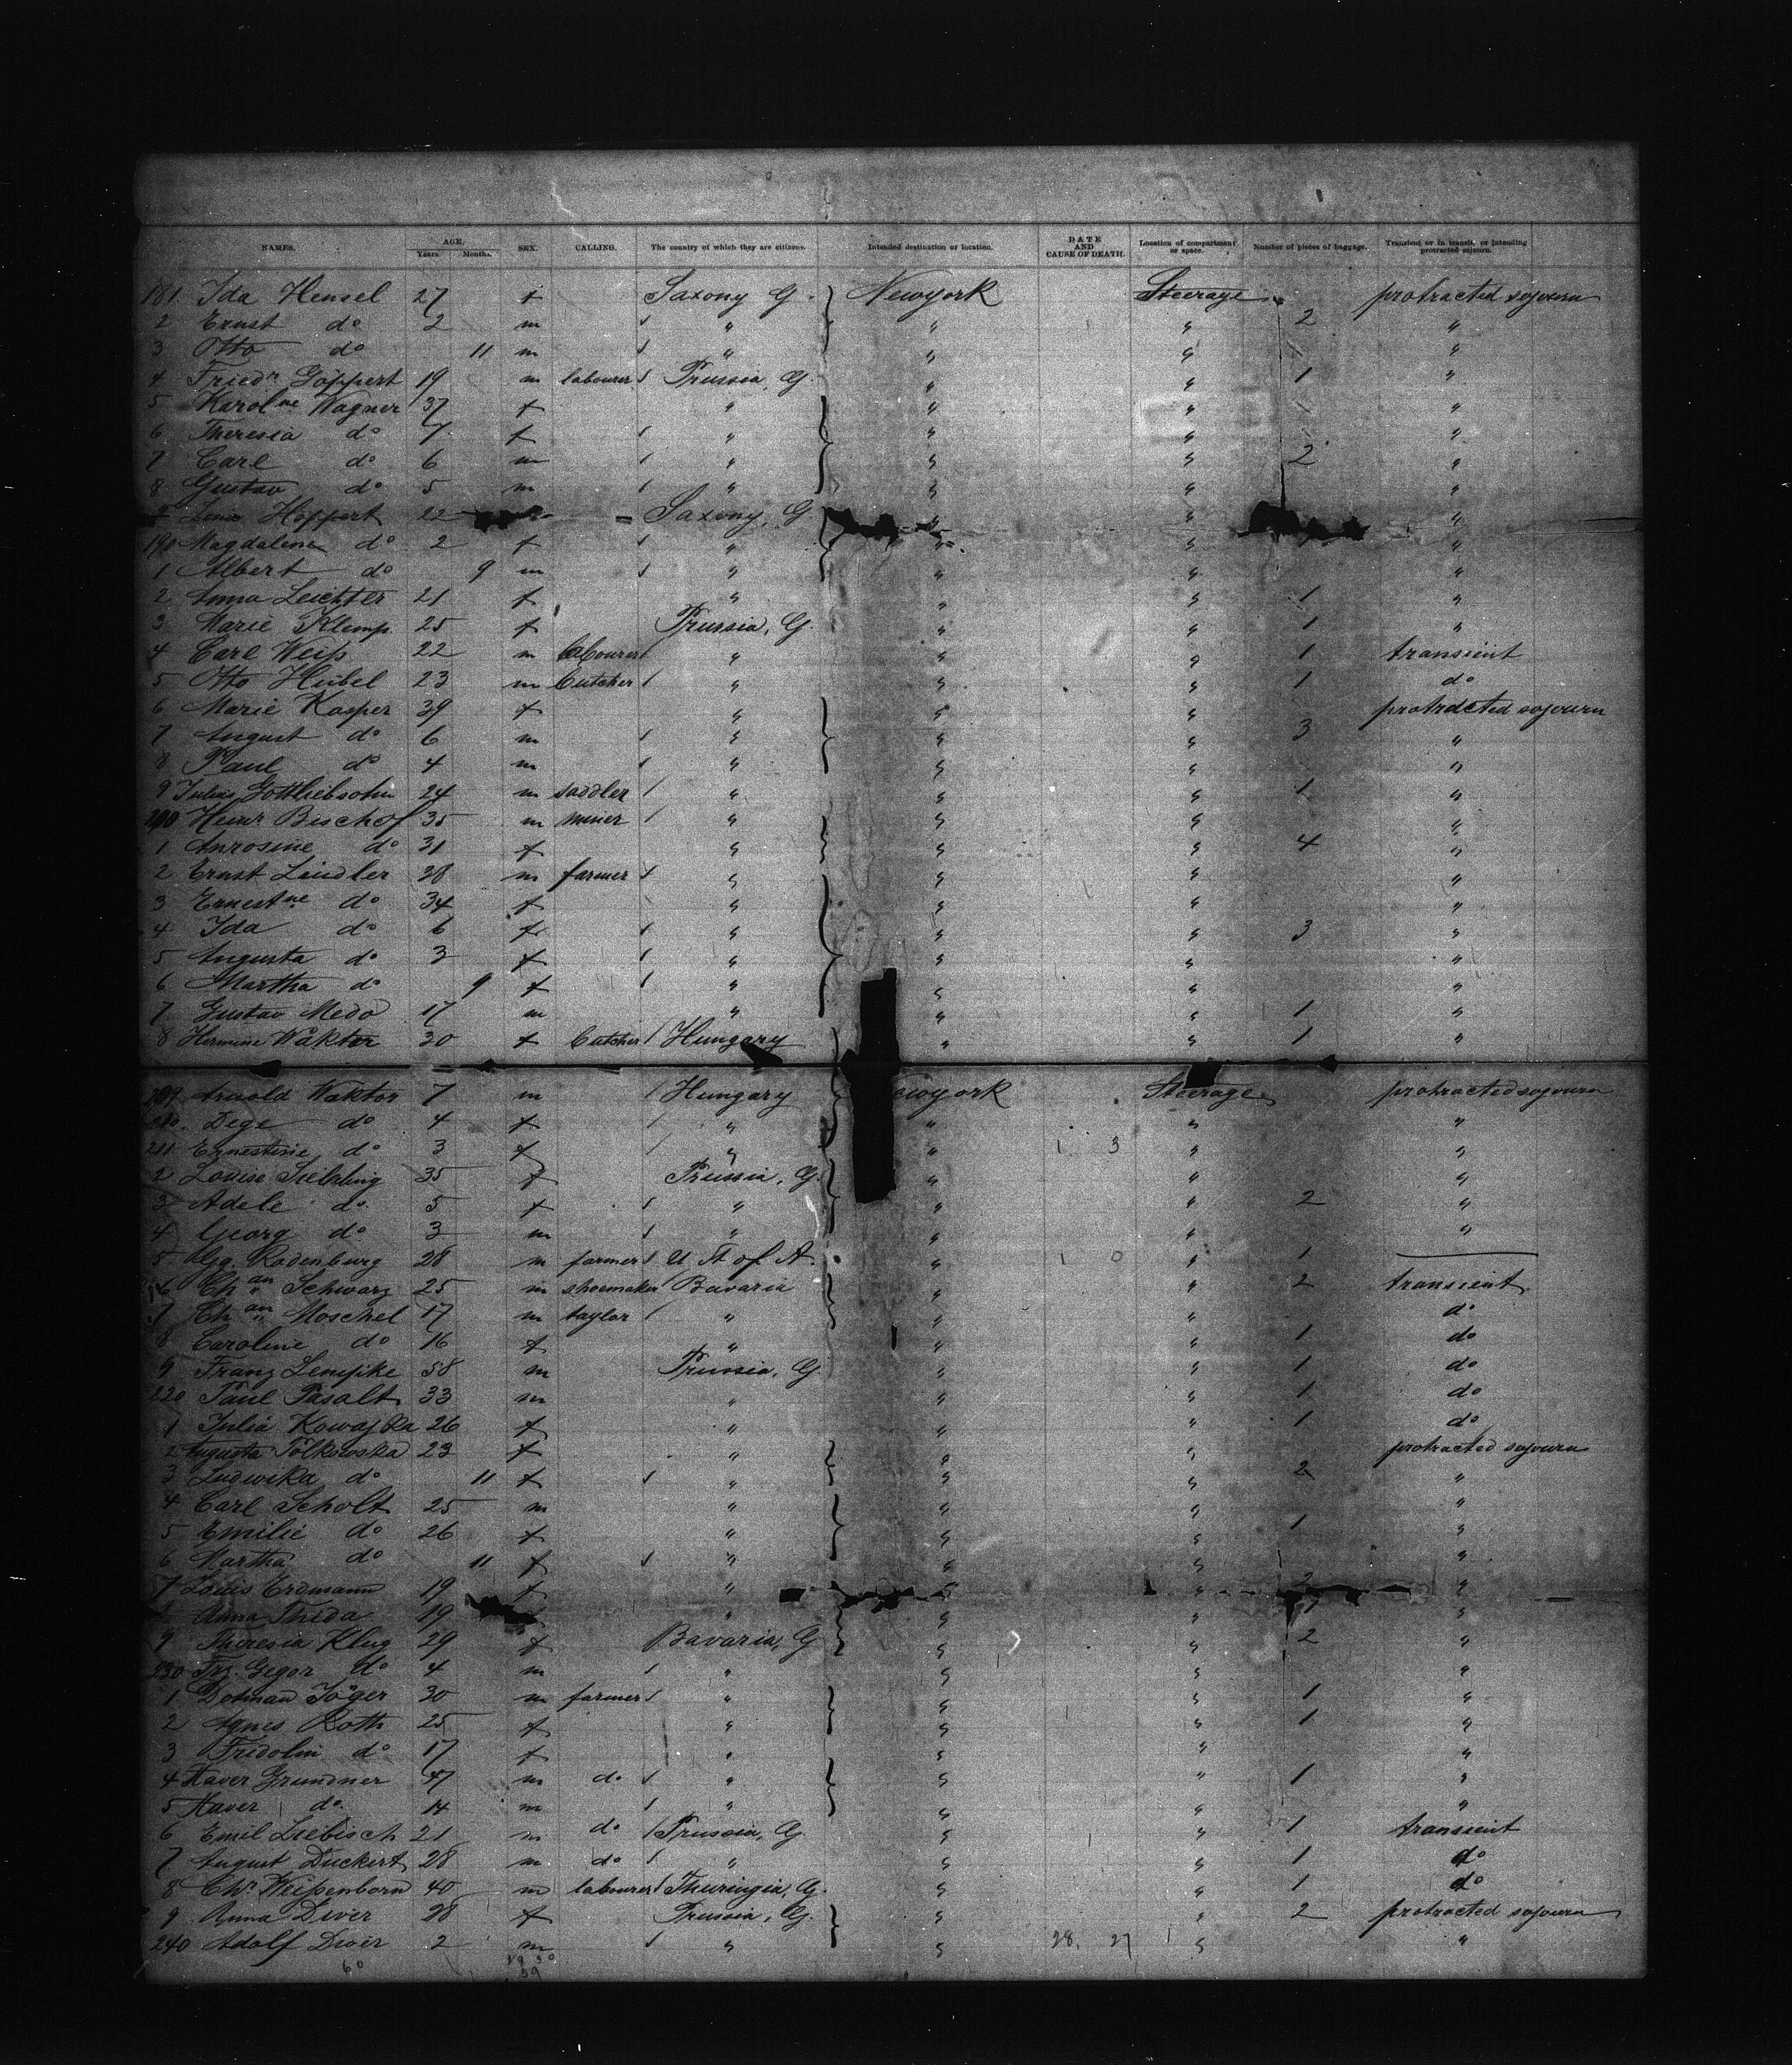 NAMES. AGE. Years. Months. SEX. CALLING. The country of which they are citizens. Intended destination or location. DATE AND CAUSE OF DEATH. Location of compartment or space. Number of pieces of baggage. Transient or in transit, or intending protracted sojourn.
181 Ida Hensel 27 f Saxony G. Newyork Steerage protracted sojourn
2 Ernst do 2 m " " " 2 "
3 Otto do 11 m " " " "
4 Friedr Göppert 19 m labourer Prussia, G. " " 1 "
5 Karolne Wagner 37 f " " " "
6 Theresia do 7 f " " " "
7 Carl do 6 m " " " 2 "
8 Gustav do 5 m " " " "
Höppert 22 Saxony, G " " "
190 Magdalena do 2 f " " " "
1 Albert do 9 m " " " "
2 Anna Leichter 21 f " " " 1 "
3 Marie Klemp 25 f Prussia, G. " " 1 "
4 Carl Weiß 22 m labourer " " " 1 transient
5 Otto Heibel 23 m butcher " " " 1 do
6 Marie Kasper 39 f " " " protracted sojourn
7 August do 6 m " " " 3 "
8 Paul do 4 m " " " "
9 Julius Gottliebsohn 24 m saddler " " " 1 "
200 Heinr Bischof 35 m " " " "
1 Anrosine do 31 f " " " 4 "
2 Ernst Lindler 38 m farmer " " " "
3 Ernestne do 34 f " " " "
4 Ida do 6 f " " " 3 "
5 Augusta do 3 f " " " "
6 Martha do 9 f " " " "
7 Gustav Medo 17 m " " " 1 "
8 Hermine Waktor 30 f butcher Hungary " " 1 "
209 Arnold Waktor 7 m Hungary ewyork Steerage protracted sojourn
210. Dege do 4 f " " " "
211 Ernestine do 3 f " " 1 3 " "
2 Louise 35 f Prussia, G. " " "
3 Adele do 5 f " " " 2 "
4 Georg do 3 m " " " "
5 Gg. Rodenburg 28 m farmer U. St of A. " 1 0 " 1
6 Chan Schwarz 25 m shoemaker Bavaria " " 2 transient
7 Chan Moschel 17 m taylor " " " do
8 Caroline do 16 f " " " 1 do
9 Franz Lempke 58 m Prussia, G " " 1 do
220 Paul Pasalt 33 m " " " 1 do
1 Julia Kowajka 26 f " " " 1 do
2 Augusta Polkowska 23 f " " " protracted sojourn
3 Ludwika do 11 f " " " 2 "
4 Carl Scholt 25 m " " " "
5 Emilie do 26 f " " " 1 "
6 Martha do 11 f " " " "
7 Louis Erdmann 19 f " " " 2 "
Anna Threda 19 " " " 1 "
9 Theresia Klug 29 f Bavaria, G " " 2 "
230 Frz. Gegor do 4 m " " " "
1 Jäger 30 m farmer " " " 1 "
2 Agnes Roth 25 f " " " 1 "
3 Fridolin do 17 f " " " "
4 Xaver Grundner 47 m do " " " 1 "
5 Xaver do. 14 m " " " "
6 Emil Liebisch 21 m do Prussia, G. " " 1 transient
7 August Duckert 28 m do " " " 1 do
8 Chr Weißenborn 40 m labourer Thuringia, G. " " 1 do
9 Anna Diver 28 f Prussia, G. " " 2 protracted sojourn
240 Adolf Diver 2 m " " 28. 27 " "
60 29 30
59